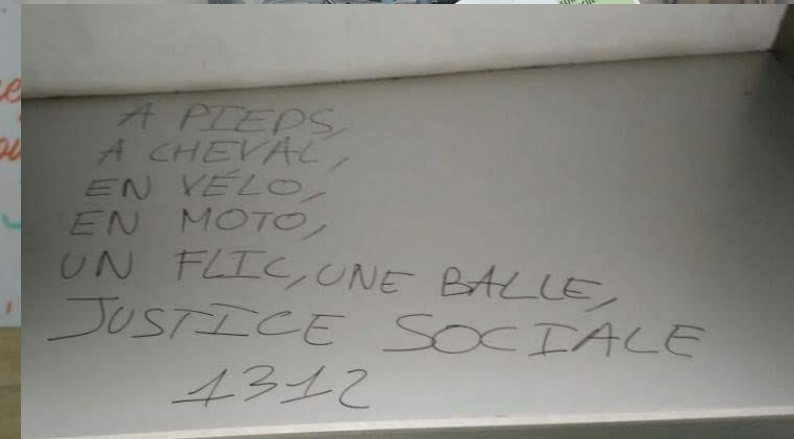 A PIEDS,
A CHEVAL,
EN VÉLO,
EN MOTO,
UN FLIC, UNE BALLE,
JUSTICE SOCIALE
1312